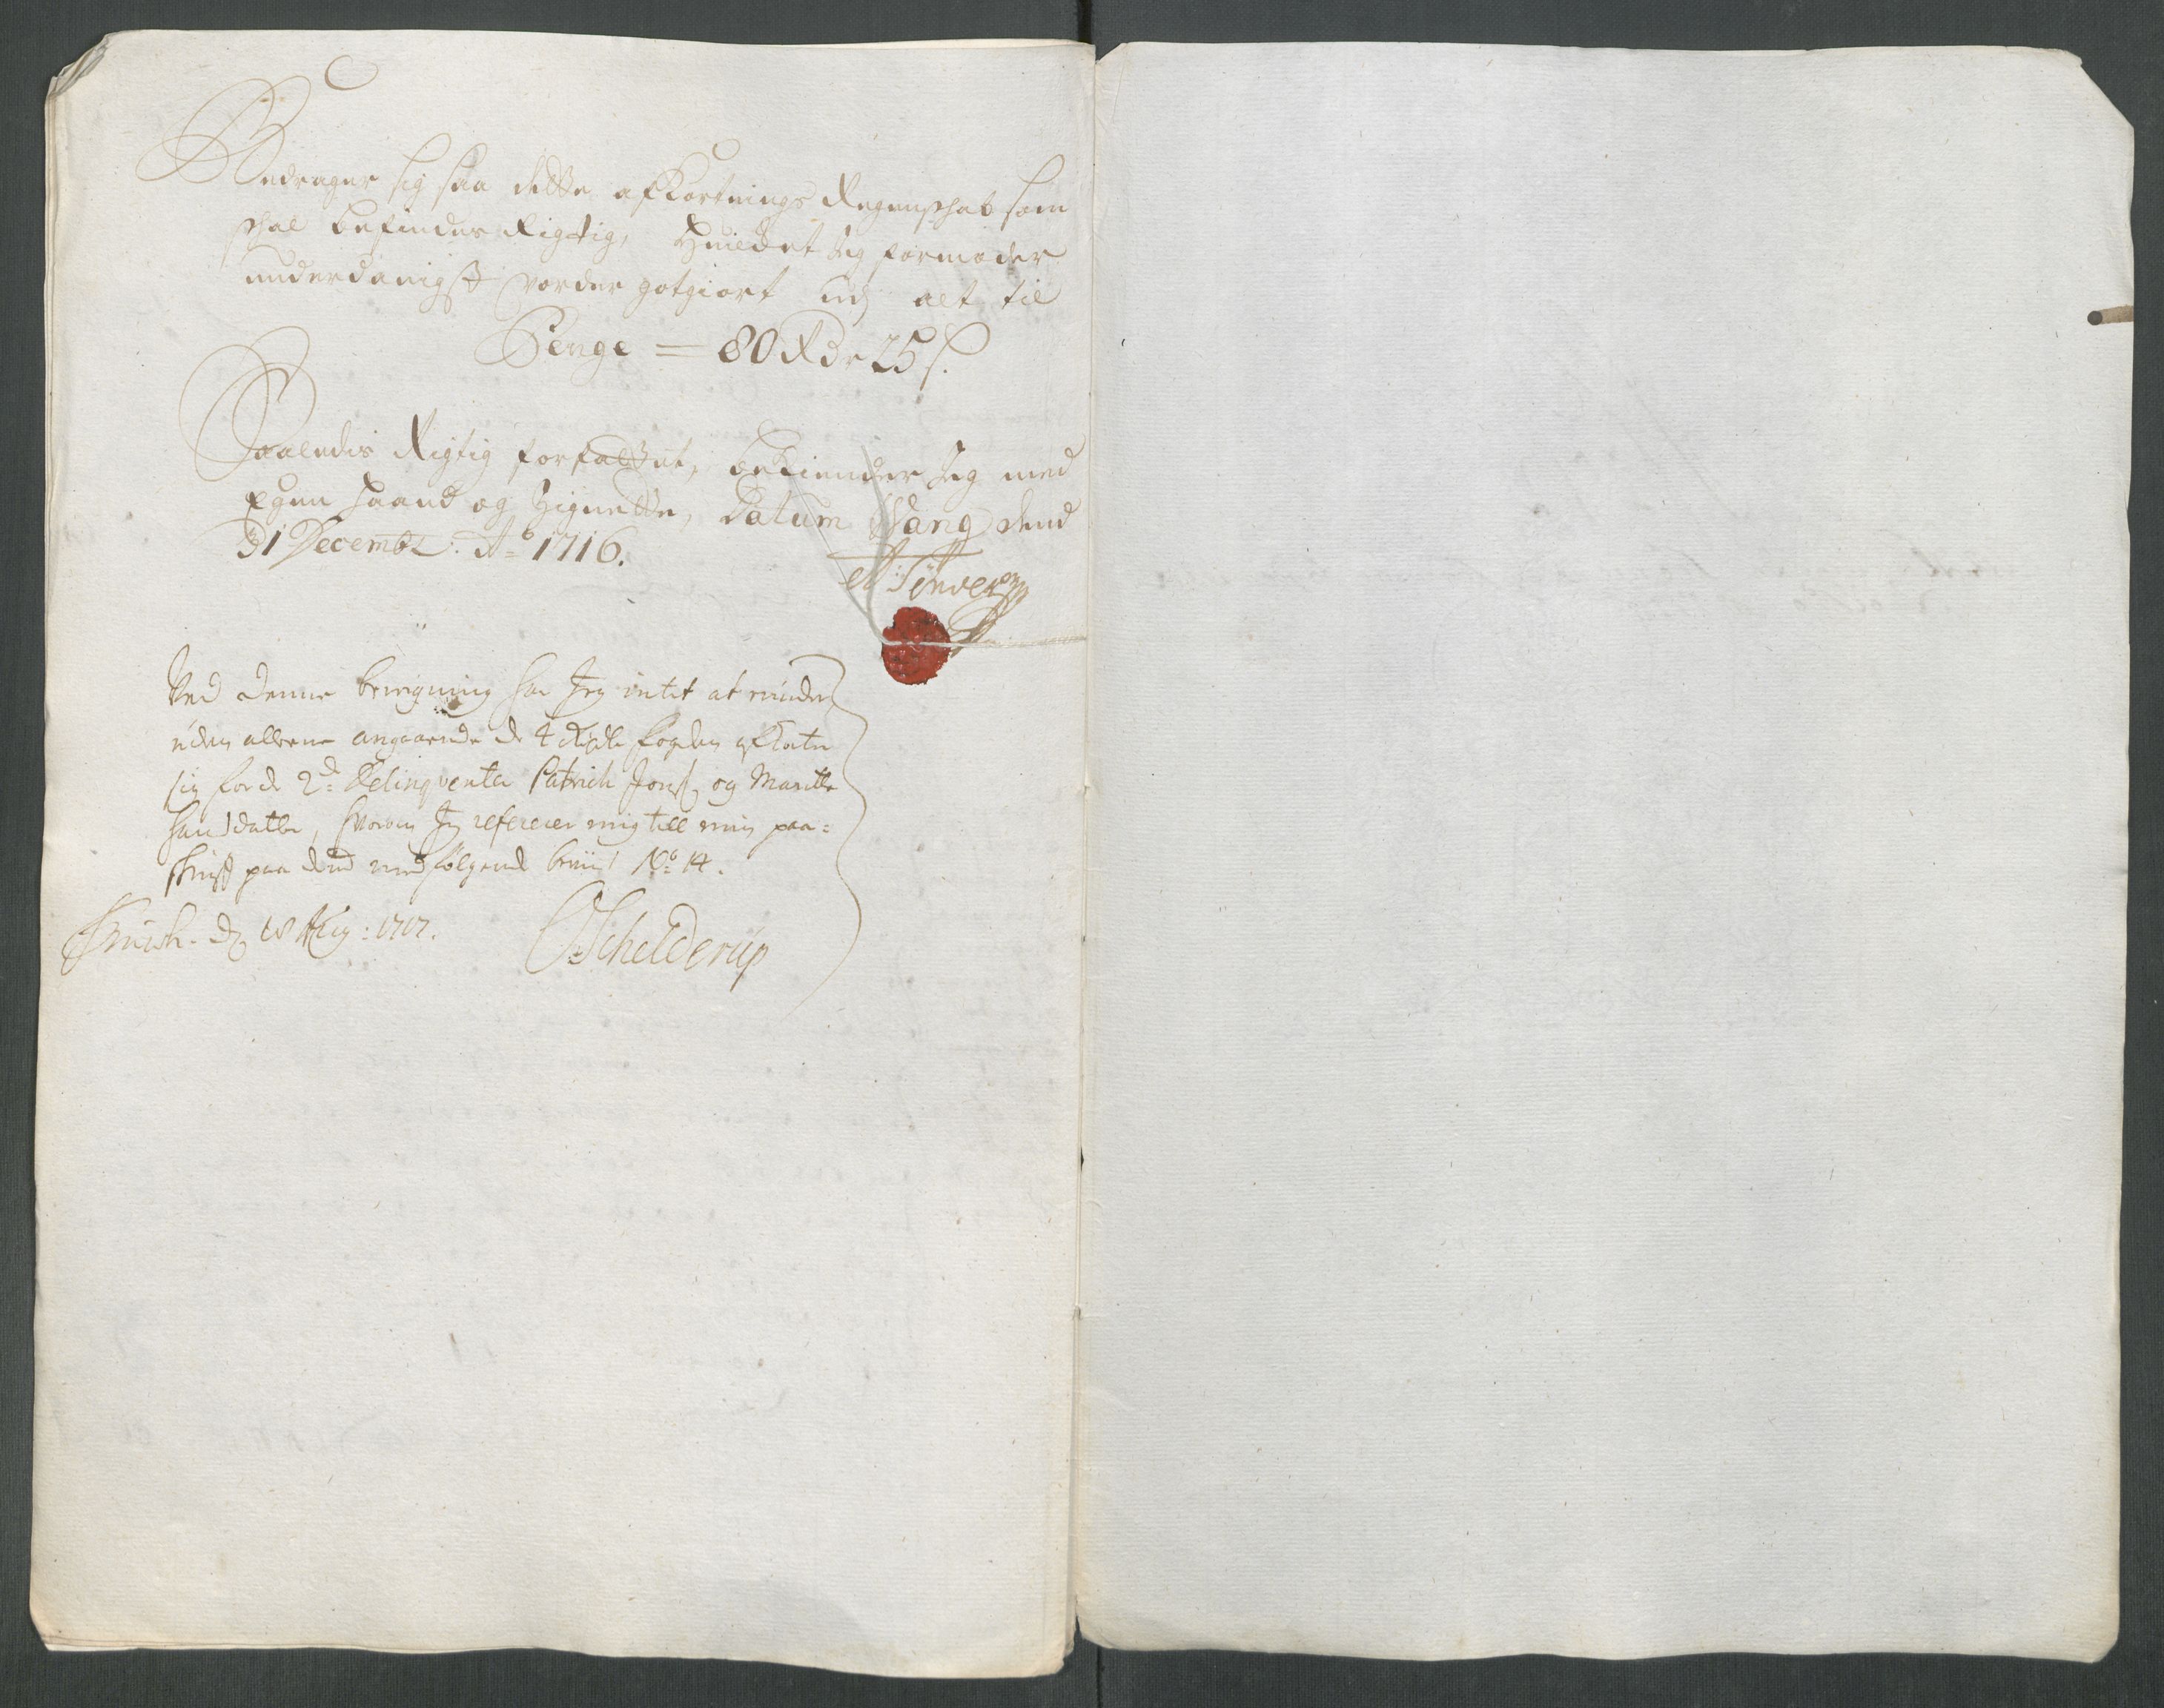 Bedrager sig saa dette afkortnings Regenschab som
schal befindes Rigtig, Huilcket Jeg formoder
underdanigst vorder gotgiort udj alt til
Penge = 80 Rdr 25 s.
Saaledis Rigtig forfattet, bekiender Jeg med
Egen Haand og Zignette, Datum Wang dend
31 Decembr: Ao 1716.
Ved denne beregning har Jeg intet at
uden alleene angaaende de 4 Rixdlr fogden afkorter
sig for de 2de Delinqventer Patrich Jonss. og Maritte
Hansdatter, hvorom Jeg refererer mig till min paa=
skrift paa dend medfølgende beviis No 14.
d. 18 Aug: 1717. Schelderup